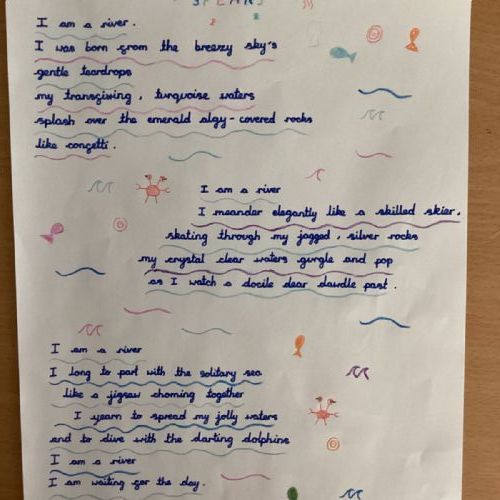 SPEAKS
I am a river.
I was born from the breezy sky's
gentle teardrops
my transfixing, turquoise waters
splash over the emerald algy-covered rocks
like confetti.
I am a river
I meander elegantly like a skilled skier.
skating through my jagged, silver rocks
my crystal clear waters gurgle and pop
as I watch a docile dear dawdle past.
I am a river
I long to part with the solitary sea
like a jigsaw choming together
I yearn to spread my jolly waters
and to dive with the darting dolphins
I am a river
I am waiting for the day.